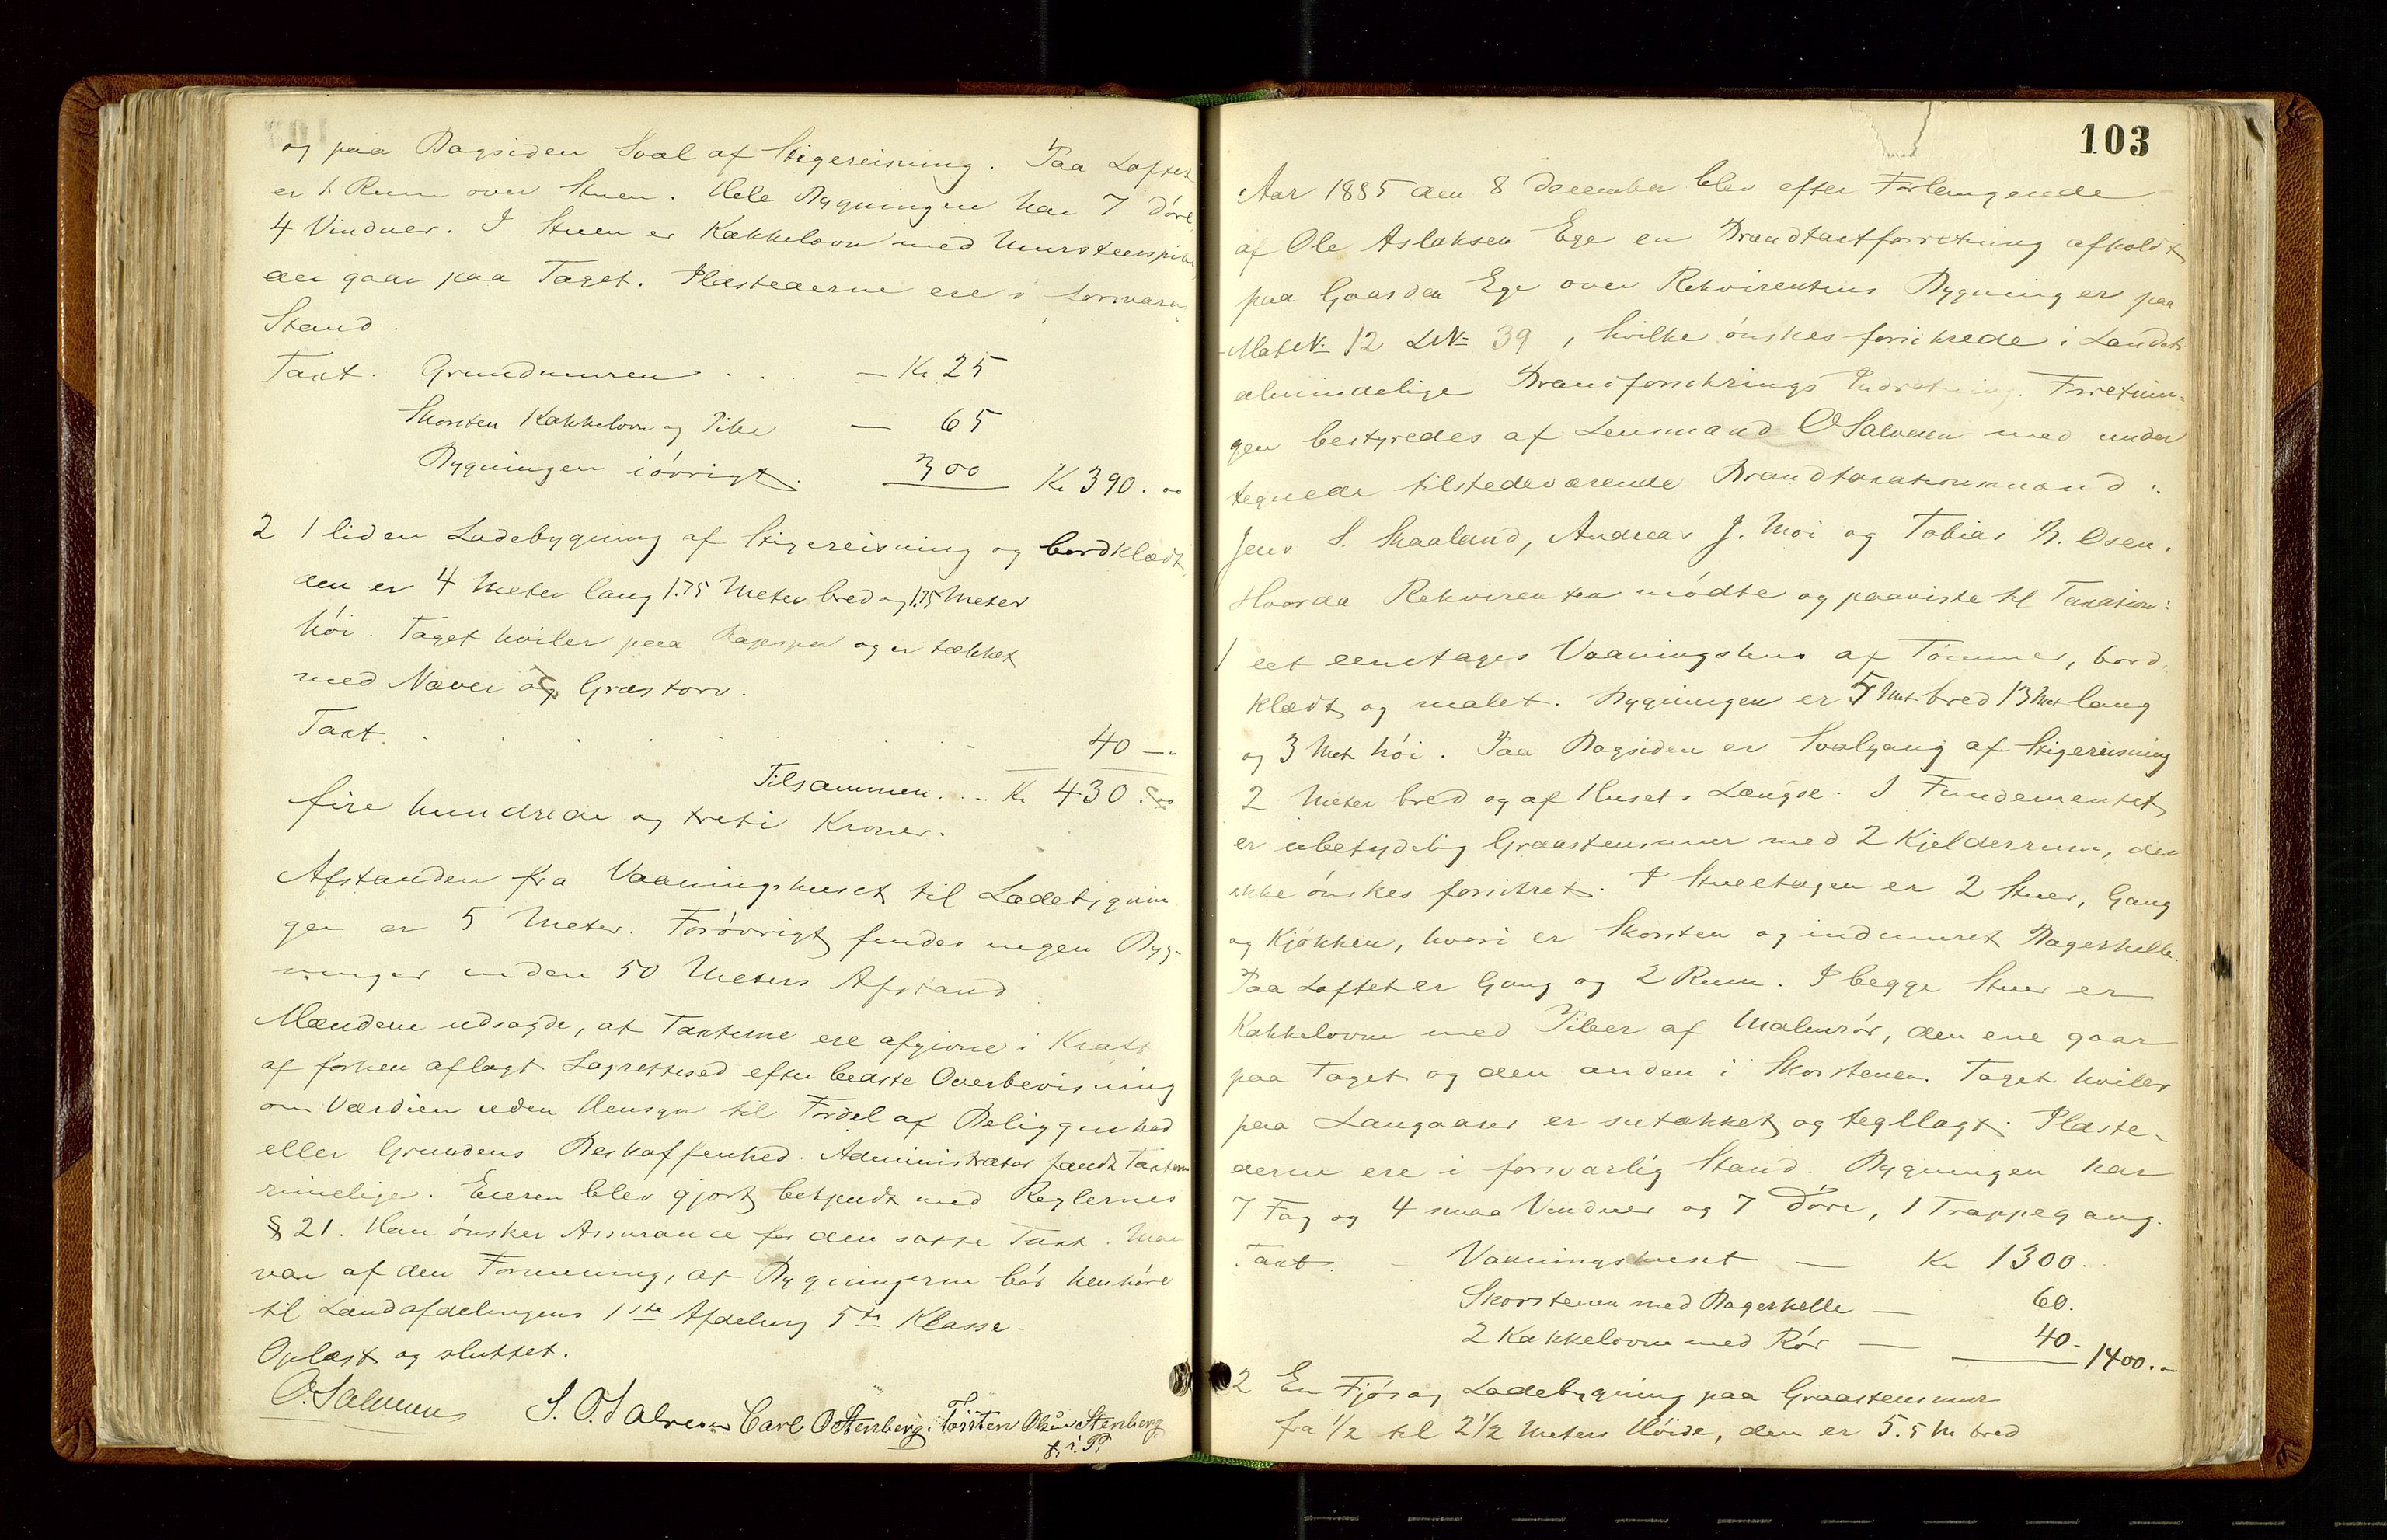 og paa Bagsiden Sval af Stigereisning. Paa Loftet
er 1 Rum over Stuen. Hele Bygningen har 7 Döre
4 Vinduer. I Stuen er Kakkelovn med Murstenspibe
der gaar paa Taget. Ildstederne ere i forsvarlig
Stand.
Taxt. Grundmuren . . — Kr 25
Skorsten Kakkelovn og Pibe — 65
Bygningen iövrigt. 300 Kr 390. 00
2 1 liden Ladebygning af Stigereisning og bordklædt,
den er 4 Meter lang 1.75 Meter bred og 1.75 Meter
höi. Taget hviler paa og er tækket
med Næver og Græstorv.
Taxt. . . . . . . 40 —
Tilsammen. . . Kr 430. 00
fire hundrede og treti Kroner.
Afstanden fra Vaaningshuset til Ladebygnin
gen er 5 Meter. Forövrigt findes ingen Byg-
ninger inden 50 Meters Afstand
Mændene udsagde, at Taxterne ere afgivne i Kraft
af forhen aflagt Lagrettesed efter bedste Overbevisning
om Værdien uden Hensyn til Fordel af Beliggenhed
eller Grundens Beskaffenhed. Administrator fandt Taxterne
rimelige. Eieren blev gjort bekjendt med Reglernes
§ 21. Han önsker Assurance for den satte Taxt. Man
var af den Formening, at Bygningerne bör henhöre
til Landafdelingens 1ste Afdeling 5te Klasse.
Oplæst og sluttet.
O. Salvesen S. O. Salvesen Carl O Stenberg. Torsten Olsen Stenberg
f. i. P.
103
Aar 1885 den 8 December blev efter Forlangende
af Ole Aslaksen Ege en Brandtaxtforretning afholdt
paa Gaarden Ege over Rekvirentens Bygninger paa
Mat№ 12 L№ 39, hvilke önskes forsikrede i Landets
almindelige Brandforsikrings Indretning. Forretnin-
gen bestyredes af Lensmand O Salvesen med under
tegnede tilstedeværende Brandtaxationsmænd:
Jens S. Skaaland, Andreas J. Moi og Tobias B. Osen.
Hvorda Rekvirenten mödte og paaviste til Taxation:
1 eet eenetages Vaaningshus af Tömmer, bord-
klædt og malet. Bygningen er 5 Met bred 13 Met lang
og 3 Met höi. Paa Bagsiden er Svalgang af Stigereisning
2 Meter bred og af Husets Længde. I Fundementet
er ubetydelig Graastensmur med 2 Kjelderrum, der
ikke önskes forsikret. I Stueetagen er 2 Stuer, Gang
og Kjökken, hvori er Skorsten og indmuret Bagerhelle.
Paa Loftet er Gang og 2 Rum. I begge Stuer er
Kakkelovne med Piber af Malmrör, den ene gaar
paa Taget og den anden i Skorstenen. Taget hviler
paa Langaaser er sutækket og tegllagt. Ildste-
derne ere i forsvarlig Stand. Bygningen har
7 Fag og 4 smaa Vinduer og 7 Döre, 1 Trappegang.
Taxt. - Vaaningshuset — Kr 1300.
Skorstenen med Bagerhelle — 60.
2 Kakkelovne med Rör — 40. 1400. 00
2 En Fjös og Ladebygning paa Graastensmur
fra 1/2 til 2 1/2 Meters Höide, den er 5.5 M bred